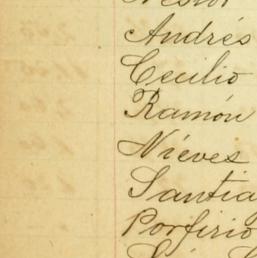 Nestor
Andrés
Cecilio
Ramón
Nieves
Santia
Porfirio